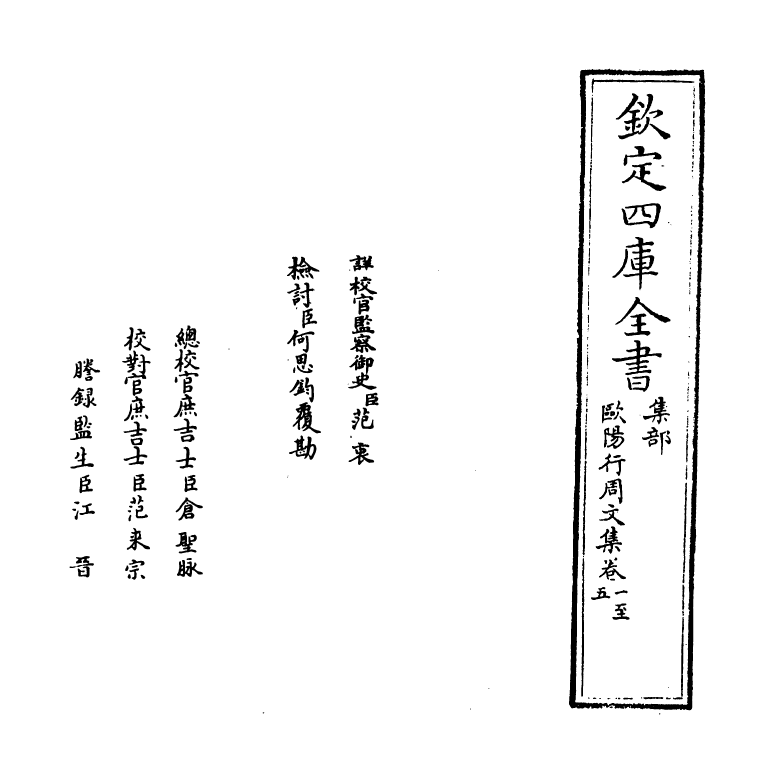 欽定四庫全書
集部
歐陽行周文集卷一至五
詳校官監察御史臣范衷
檢討臣何思鈞覆勘
總校官庶吉士臣倉聖脉
校對官庶吉士臣范来宗
謄録監生臣江晉